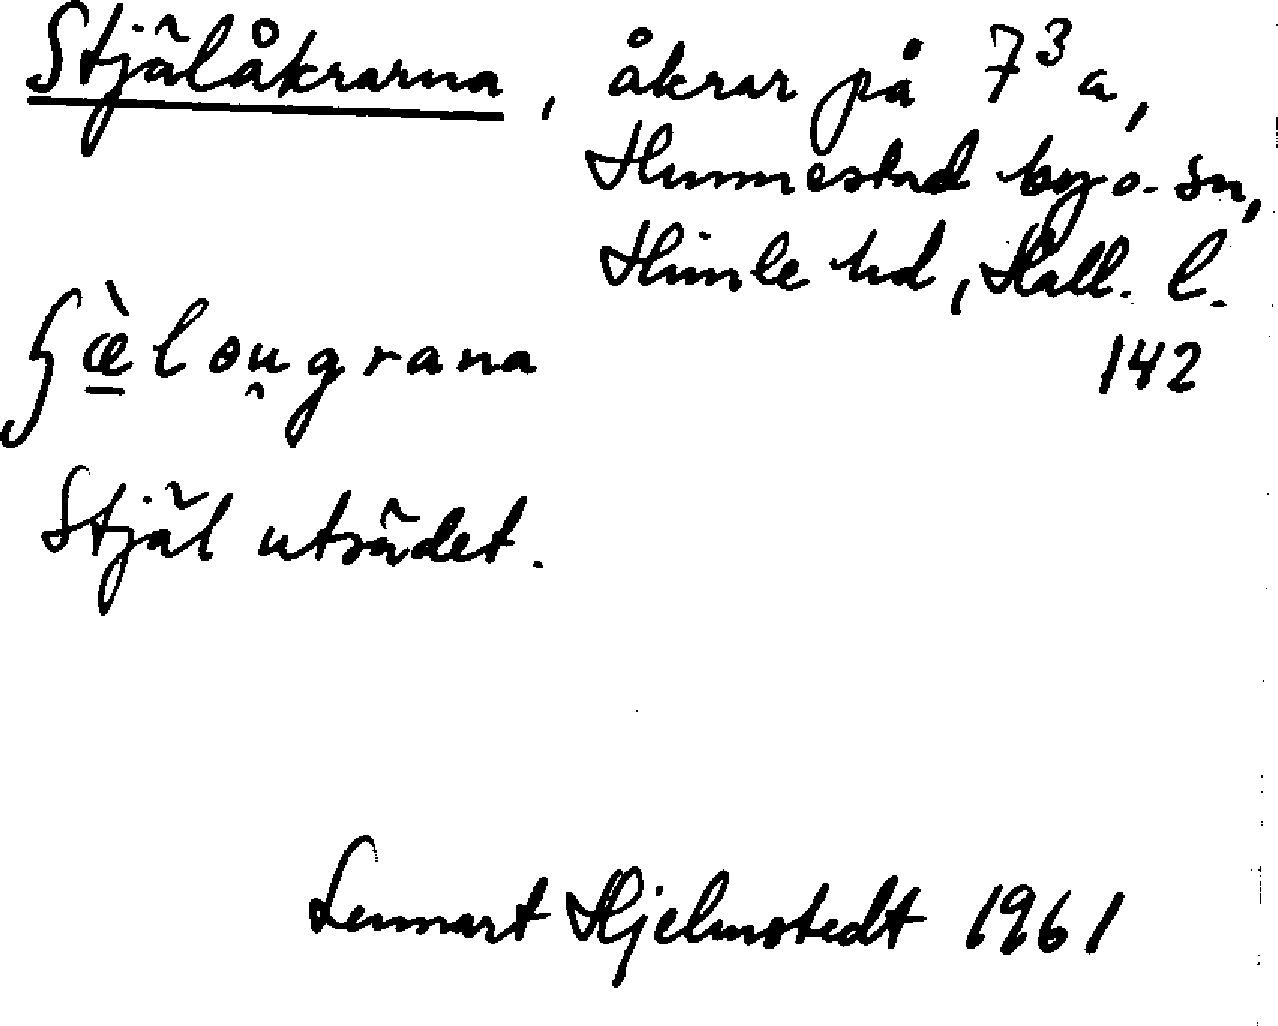 Stjälåkrarna, åkrar på 7³a,
Hunnestad by o. sn,
Himle hd, Hall. l.
142
ʃæ̠̀lou̯grana
Stjäl uträdet.
Lennart Hjelmstedt 1961